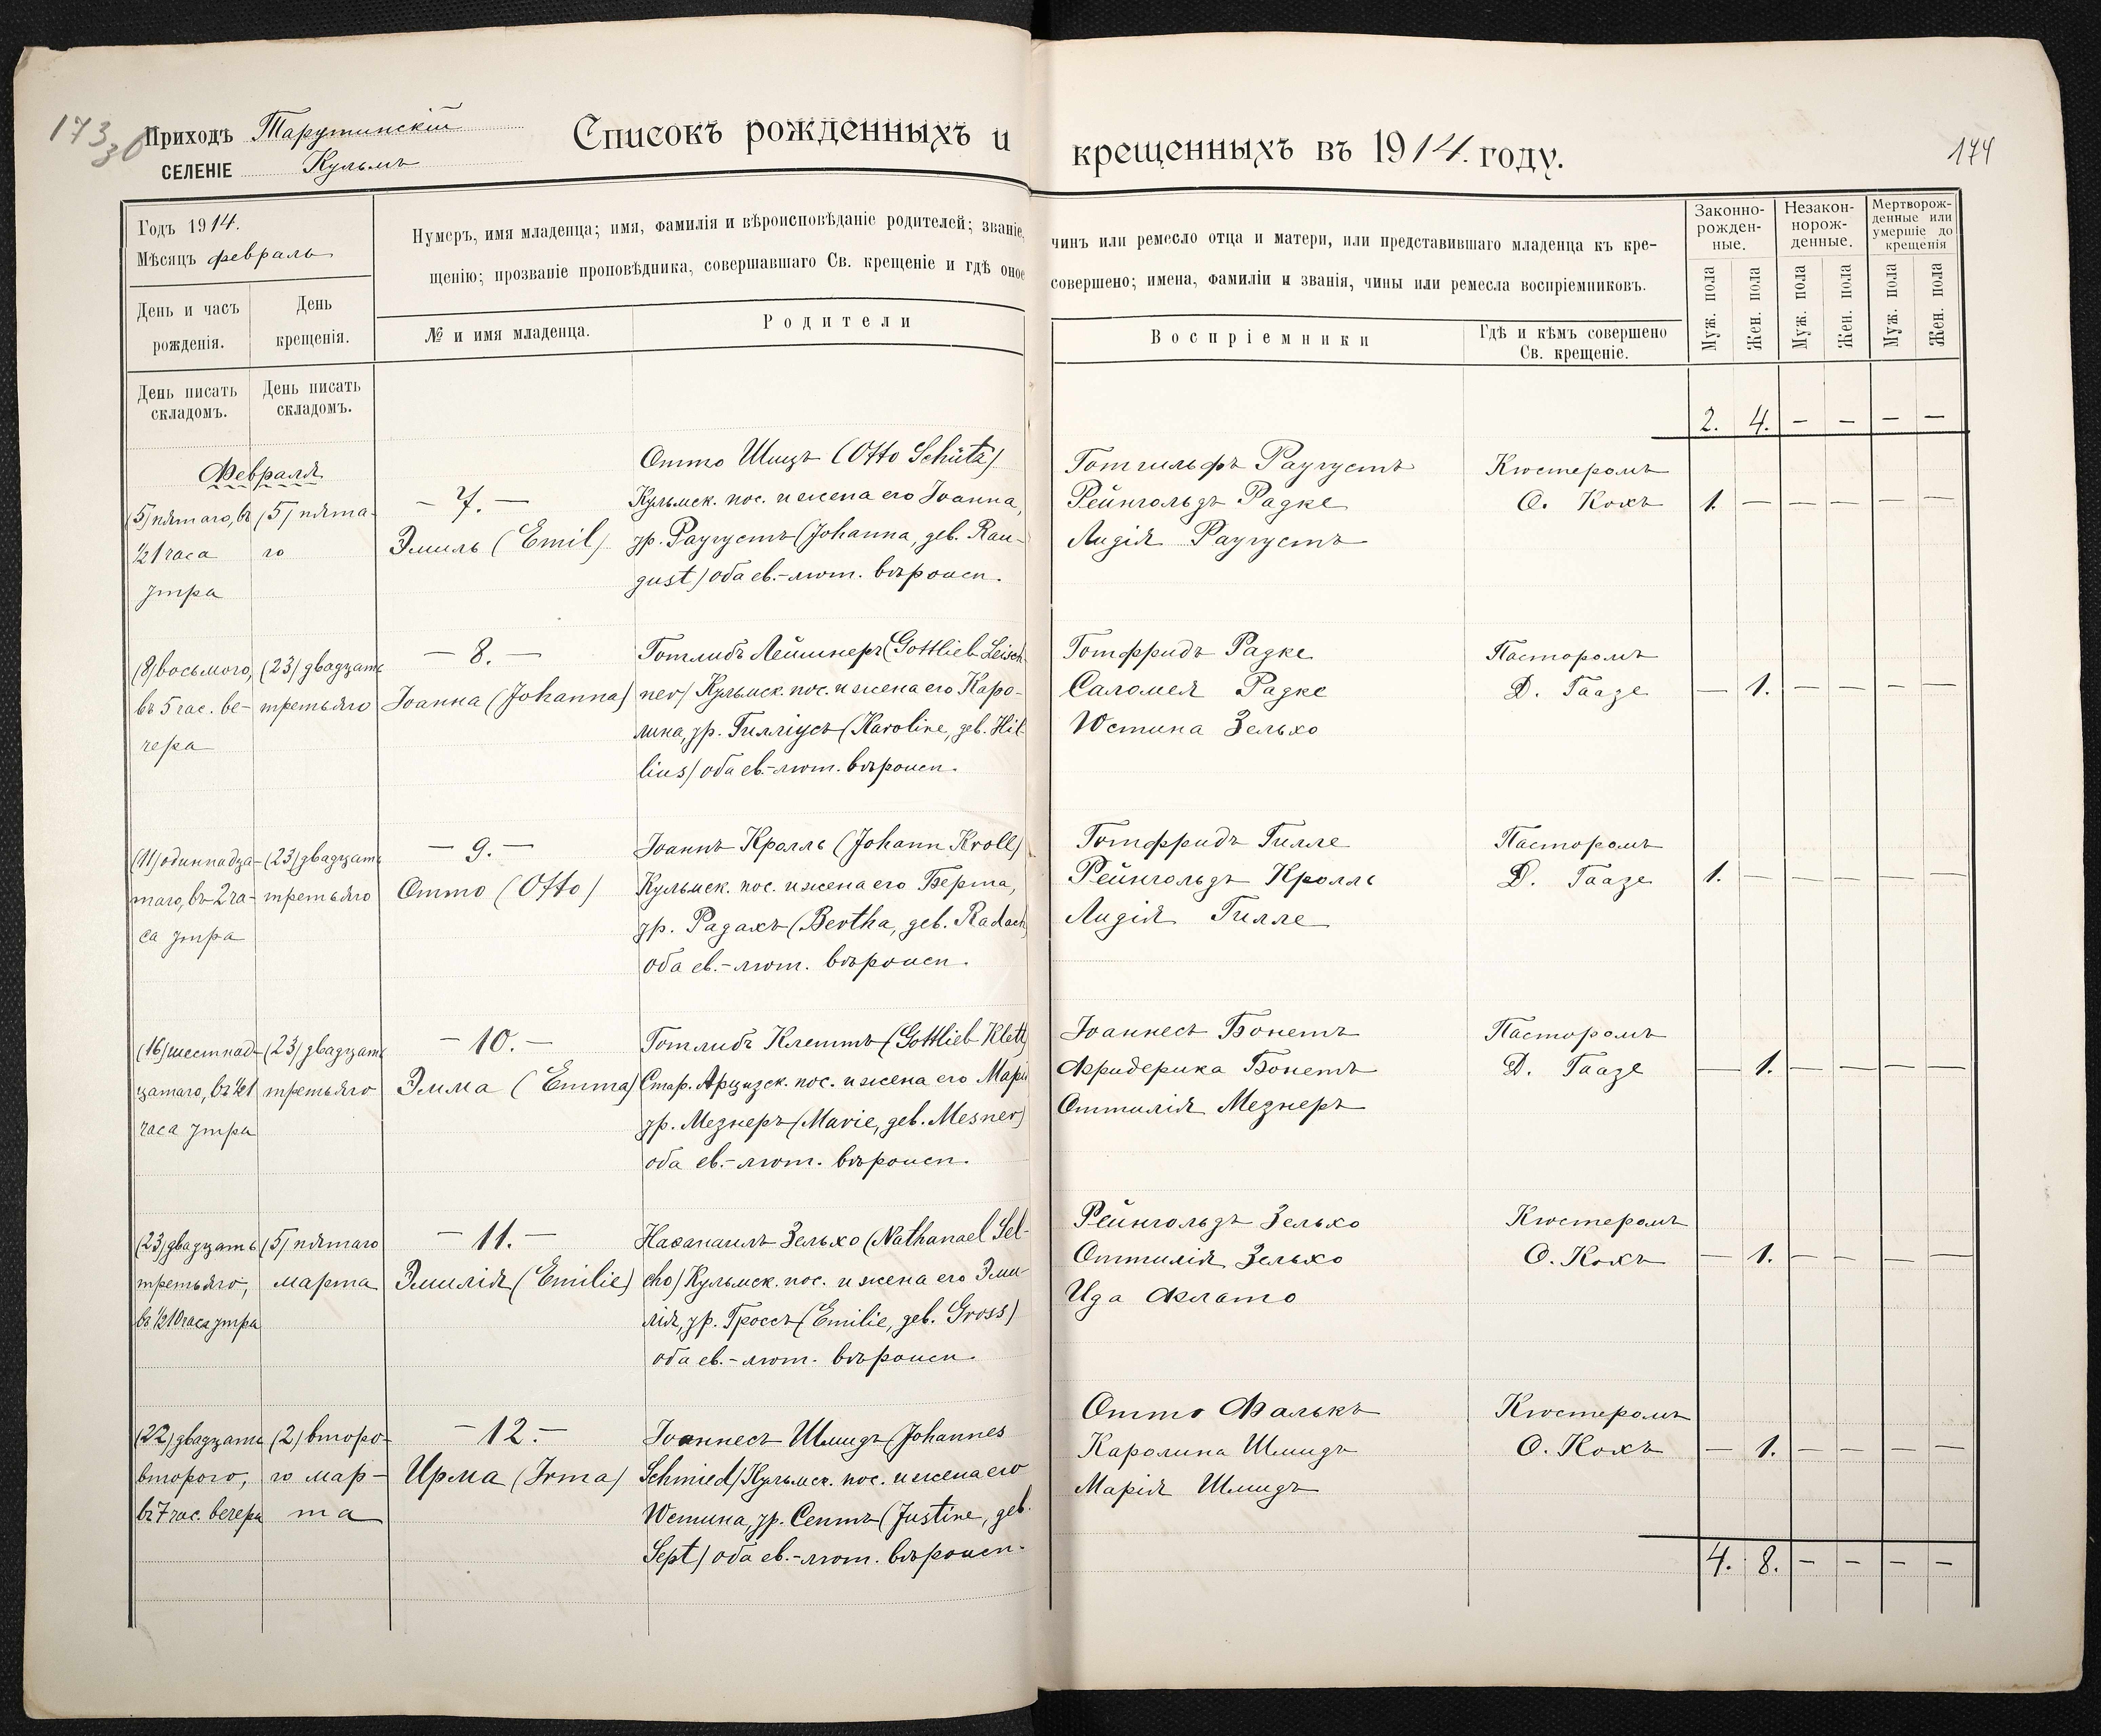 173
30
Приходъ Тарутинскій
СЕЛЕНІЕ Кульмъ
Списокъ рожденныхъ и крещенныхъ въ 1914. году.
174
Годъ 1914.
Мѣсяцъ февраль
День и часъ рожденія.
День крещенія.
День писать складомъ.
День писать складомъ.
Нумеръ, имя младенца; имя, фамилія и вѣроисповѣданіе родителей; званіе, чинъ или ремесло отца и матери, или представившаго младенца къ кре-
щенію; прозваніе проповѣдника, совершавшаго Св. крещеніе и гдѣ оное совершено; имена, фамиліи и званія, чины или ремесла воспріемниковъ.
№ и имя младенца.
Родители
Воспріемники
Гдѣ и кѣмъ совершено
Св. крещеніе.
Законно-
рожден-
ные.
Незакон-
норож-
денные.
Мертворож-
денные или
умершіе до
крещенія
Муж. пола
Жен. пола
Муж. пола
Жен. пола
Муж. пола
Жен. пола
2. 4. — — — —
Февраля
(5) пятаго, въ
½1 часа
утра
(5) пята-
го
— 7. —
Эмиль (Emil)
Отто Шицъ (Otto Schütz)
Кульмск. пос. и жена его Іоанна,
ур. Раугустъ (Johanna, geb. Rau-
gust) оба ев.-лют. вѣроисп.
Готгильфъ Раугустъ
Рейнгольдъ Радке
Лидія Раугустъ
Кюстеромъ
О. Кохъ
1. — — — — —
(8) восьмого,
въ 5 час. ве-
чера
(23) двадцать
третьяго
— 8. —
Іоанна (Johanna)
Готлибъ Лейшнеръ (Gottlieb Leisch-
ner) Кульмск. пос. и жена его Каро-
лина, ур. Гилліусъ (Karoline, geb. Hil-
lius) оба ев.-лют. вѣроисп.
Готфридъ Радке
Саломея Радке
Юстина Зельхо
Пасторомъ
Д. Гаазе
— 1. — — — —
(11) одиннадца-
таго, въ 2 ча-
са утра
(23) двадцать
третьяго
— 9. —
Отто (Otto)
Іоаннъ Кролль (Johann Kroll)
Кульмск. пос. и жена его Берта,
ур. Радахъ (Bertha, geb. Radach)
оба ев.-лют. вѣроисп.
Готфридъ Гилле
Рейнгольдъ Кролль
Лидія Гилле
Пасторомъ
Д. Гаазе
1. — — — — —
(16) шестнад-
цатаго, въ ½1
часа утра
(23) двадцать
третьяго
— 10. —
Эмма (Emma)
Готлибъ Клеттъ (Gottlieb Klett)
Стар. Арцизск. пос. и жена его Марі
ур. Мезнеръ (Marie, geb. Mesner)
оба ев.-лют. вѣроисп.
Іоаннесъ Бонетъ
Фридерика Бонетъ
Оттилія Мезнеръ
Пасторомъ
Д. Гаазе
— 1. — — — —
(23) двадцать
третьяго,
въ ½10 часа утра
(5) пятаго
марта
— 11. —
Эмилія (Emilie)
Наѳанаилъ Зельхо (Nathanael Sel-
cho) Кульмск. пос. и жена его Эми-
лія, ур. Гроссъ (Emilie, geb. Gross)
оба ев.-лют. вѣроисп.
Рейнгольдъ Зельхо
Оттилія Зельхо
Ида Флато
Кюстеромъ
О. Кохъ
— 1. — — — —
(22) двадцать
второго,
въ 7 час. вечера
(2) второ-
го мар-
та
— 12. —
Ирма (Irma)
Іоаннесъ Шмидъ (Johannes
Schmied) Кульмск. пос. и жена его
Юстина, ур. Септъ (Justine, geb.
Sept) оба ев.-лют. вѣроисп.
Отто Фалькъ
Каролина Шмидъ
Марія Шмидъ
Кюстеромъ
О. Кохъ
— 1. — — — —
4. 8. — — — —